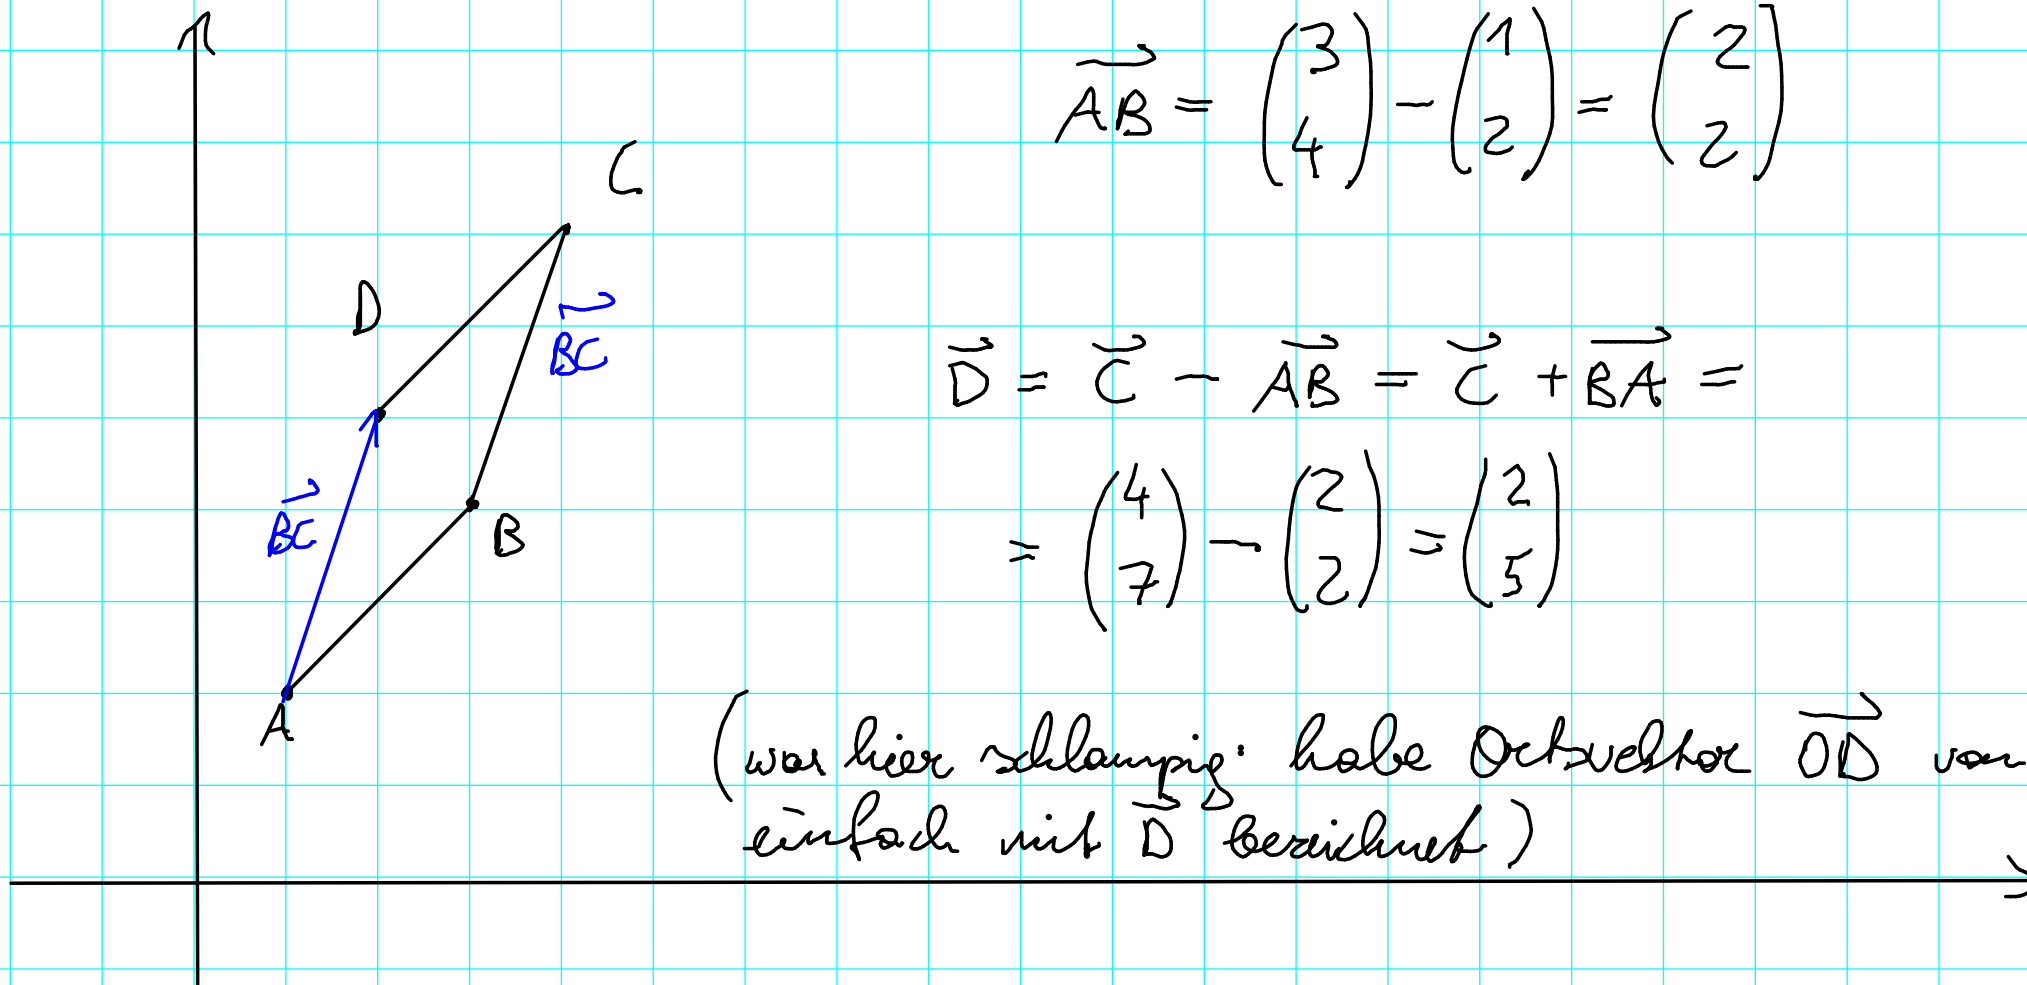 C
D
B⃗C⃗
B⃗C⃗
B
A
A⃗B⃗ = (3 4) − (1 2) = (2 2)
D⃗ = C⃗ − A⃗B⃗ = C⃗ + B⃗A⃗ =
= (4 7) − (2 2) = (2 5)
(war hier schlampig: habe Ortsvektor O⃗D⃗ von D
einfach mit D⃗ bezeichnet)